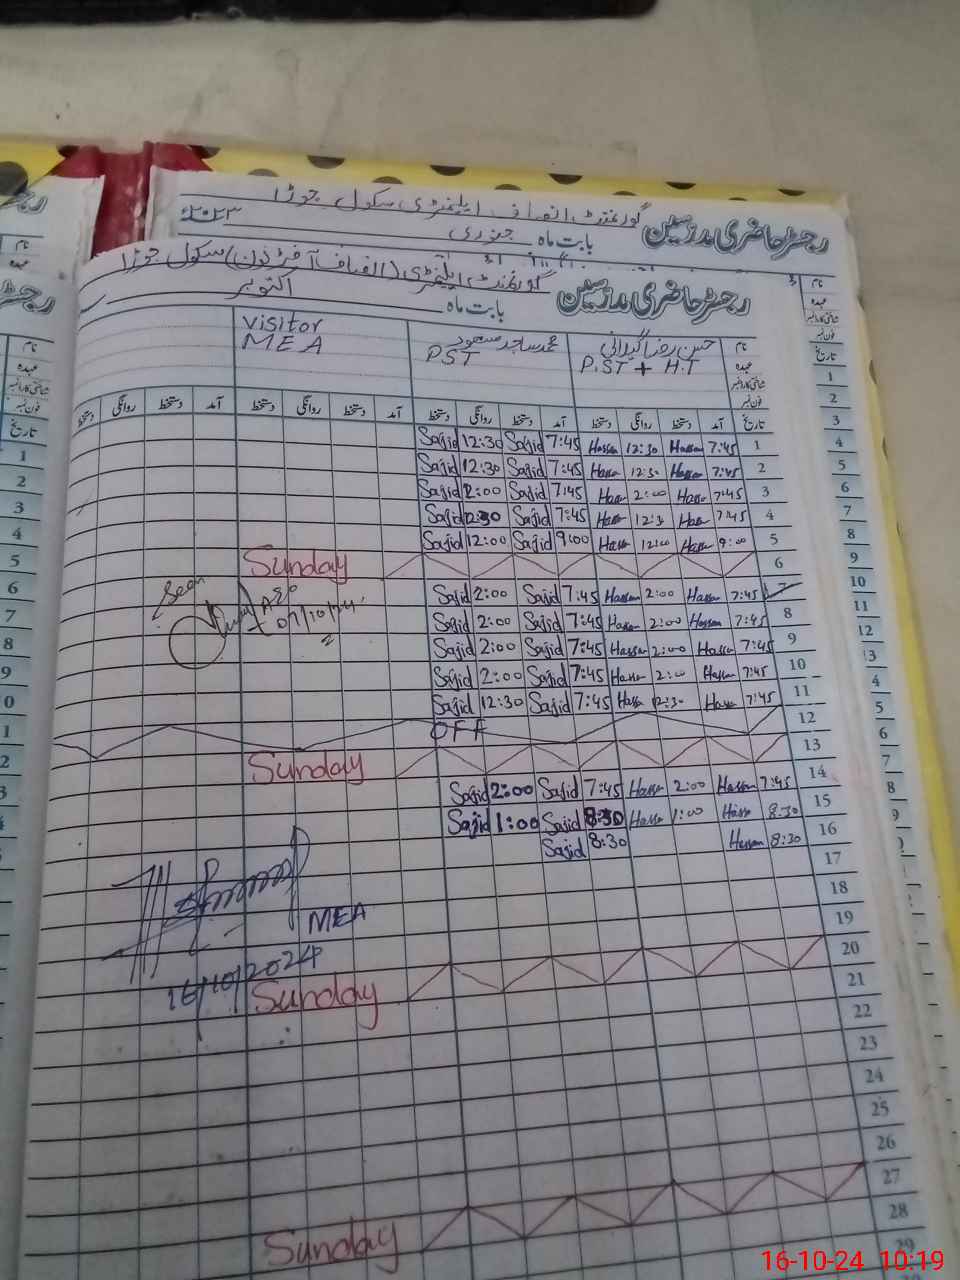 گورنمنٹ انصاف ایلیمنٹری سکول جوڑا
رجسٹر حاضری مدرسین
بابت ماہ جنوری ۲۰۲۳
گورنمنٹ ایلیمنٹری (انصاف آفٹر نون) سکول جوڑا
رجسٹر حاضری مدرسین
بابت ماہ اکتوبر
نام حسن رضا گیلانی محمد ساجد مسعود visitor
عہدہ P.ST + H.T PST MEA
شناختی کارڈ نمبر
فون نمبر
تاریخ آمد دستخط روانگی دستخط آمد دستخط روانگی دستخط آمد دستخط روانگی دستخط آمد دستخط روانگی دستخط
Sajid 12:30 Sajid 7:45 Hassan 12:30 Hassan 7:45 1
Sajid 12:30 Sajid 7:45 Hassan 12:30 Hassan 7:45 2
Sajid 2:00 Sajid 7:45 Hassan 2:00 Hassan 7:45 3
Sajid 12:30 Sajid 7:45 Hassan 12:30 Hassan 7:45 4
Sajid 12:00 Sajid 9:00 Hassan 12:00 Hassan 9:00 5
Sunday 6
Sajid 2:00 Sajid 7:45 Hassan 2:00 Hassan 7:45 7
Sajid 2:00 Sajid 7:45 Hassan 2:00 Hassan 7:45 8
Sajid 2:00 Sajid 7:45 Hassan 2:00 Hassan 7:45 9
Sajid 2:00 Sajid 7:45 Hassan 2:00 Hassan 7:45 10
Sajid 12:30 Sajid 7:45 Hassan 12:30 Hassan 7:45 11
OFF 12
Sunday 13
Sajid 2:00 Sajid 7:45 Hassan 2:00 Hassan 7:45 14
Sajid 1:00 Sajid 8:30 Hassan 1:00 Hassan 8:30 15
Sajid 8:30 Hassan 8:30 16
17
18
19
20
21
22
23
24
25
26
27
28
29
Seen
AEO
07/10/24
MEA
16/10/2024
Sunday
Sunday
16-10-24 10:19